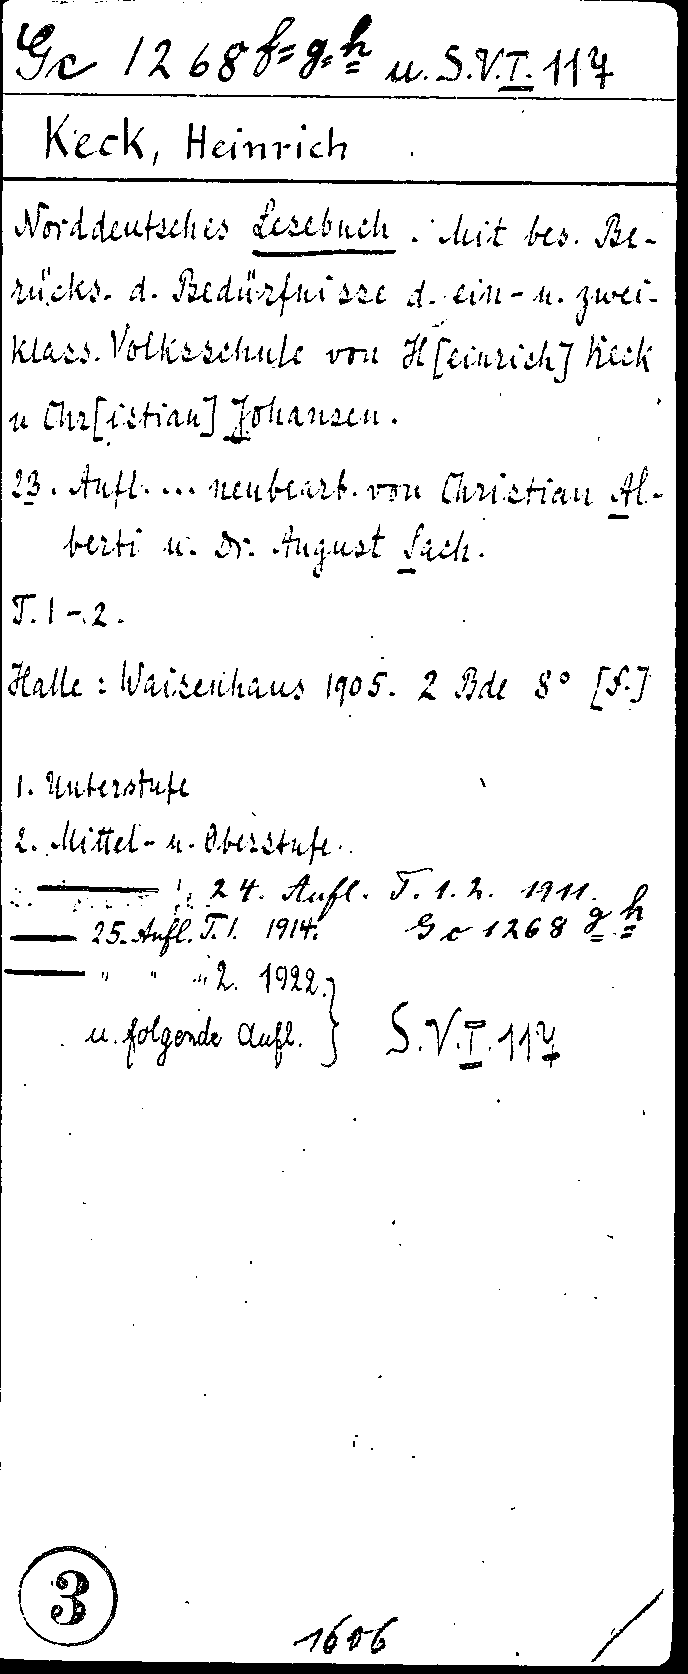 Gc 1268 f= g= h u. S.V.I. 117
Keck, Heinrich
Norddeutsches Lesebuch. Mit bes. Be-
rücks. d. Bedürfnisse d. ein- u. zwei-
klass. Volksschule von H[einrich] Keck
u Chr[istian] Johansen.
23. Aufl. ... neubearb. von Christian Al-
berti u. Dr. August Sach.
T. 1-2.
Halle: Waisenhaus 1905. 2 Bde 8° [f.]
1. Unterstufe
2. Mittel- u. Oberstufe.
24. Aufl. T. 1. 2. 1911.
— 25. Aufl. T. 1. 1914. Gc 1268 g h
— " " " 2. 1922.
u. folgende Aufl. } S.V.I. 117
3
1606